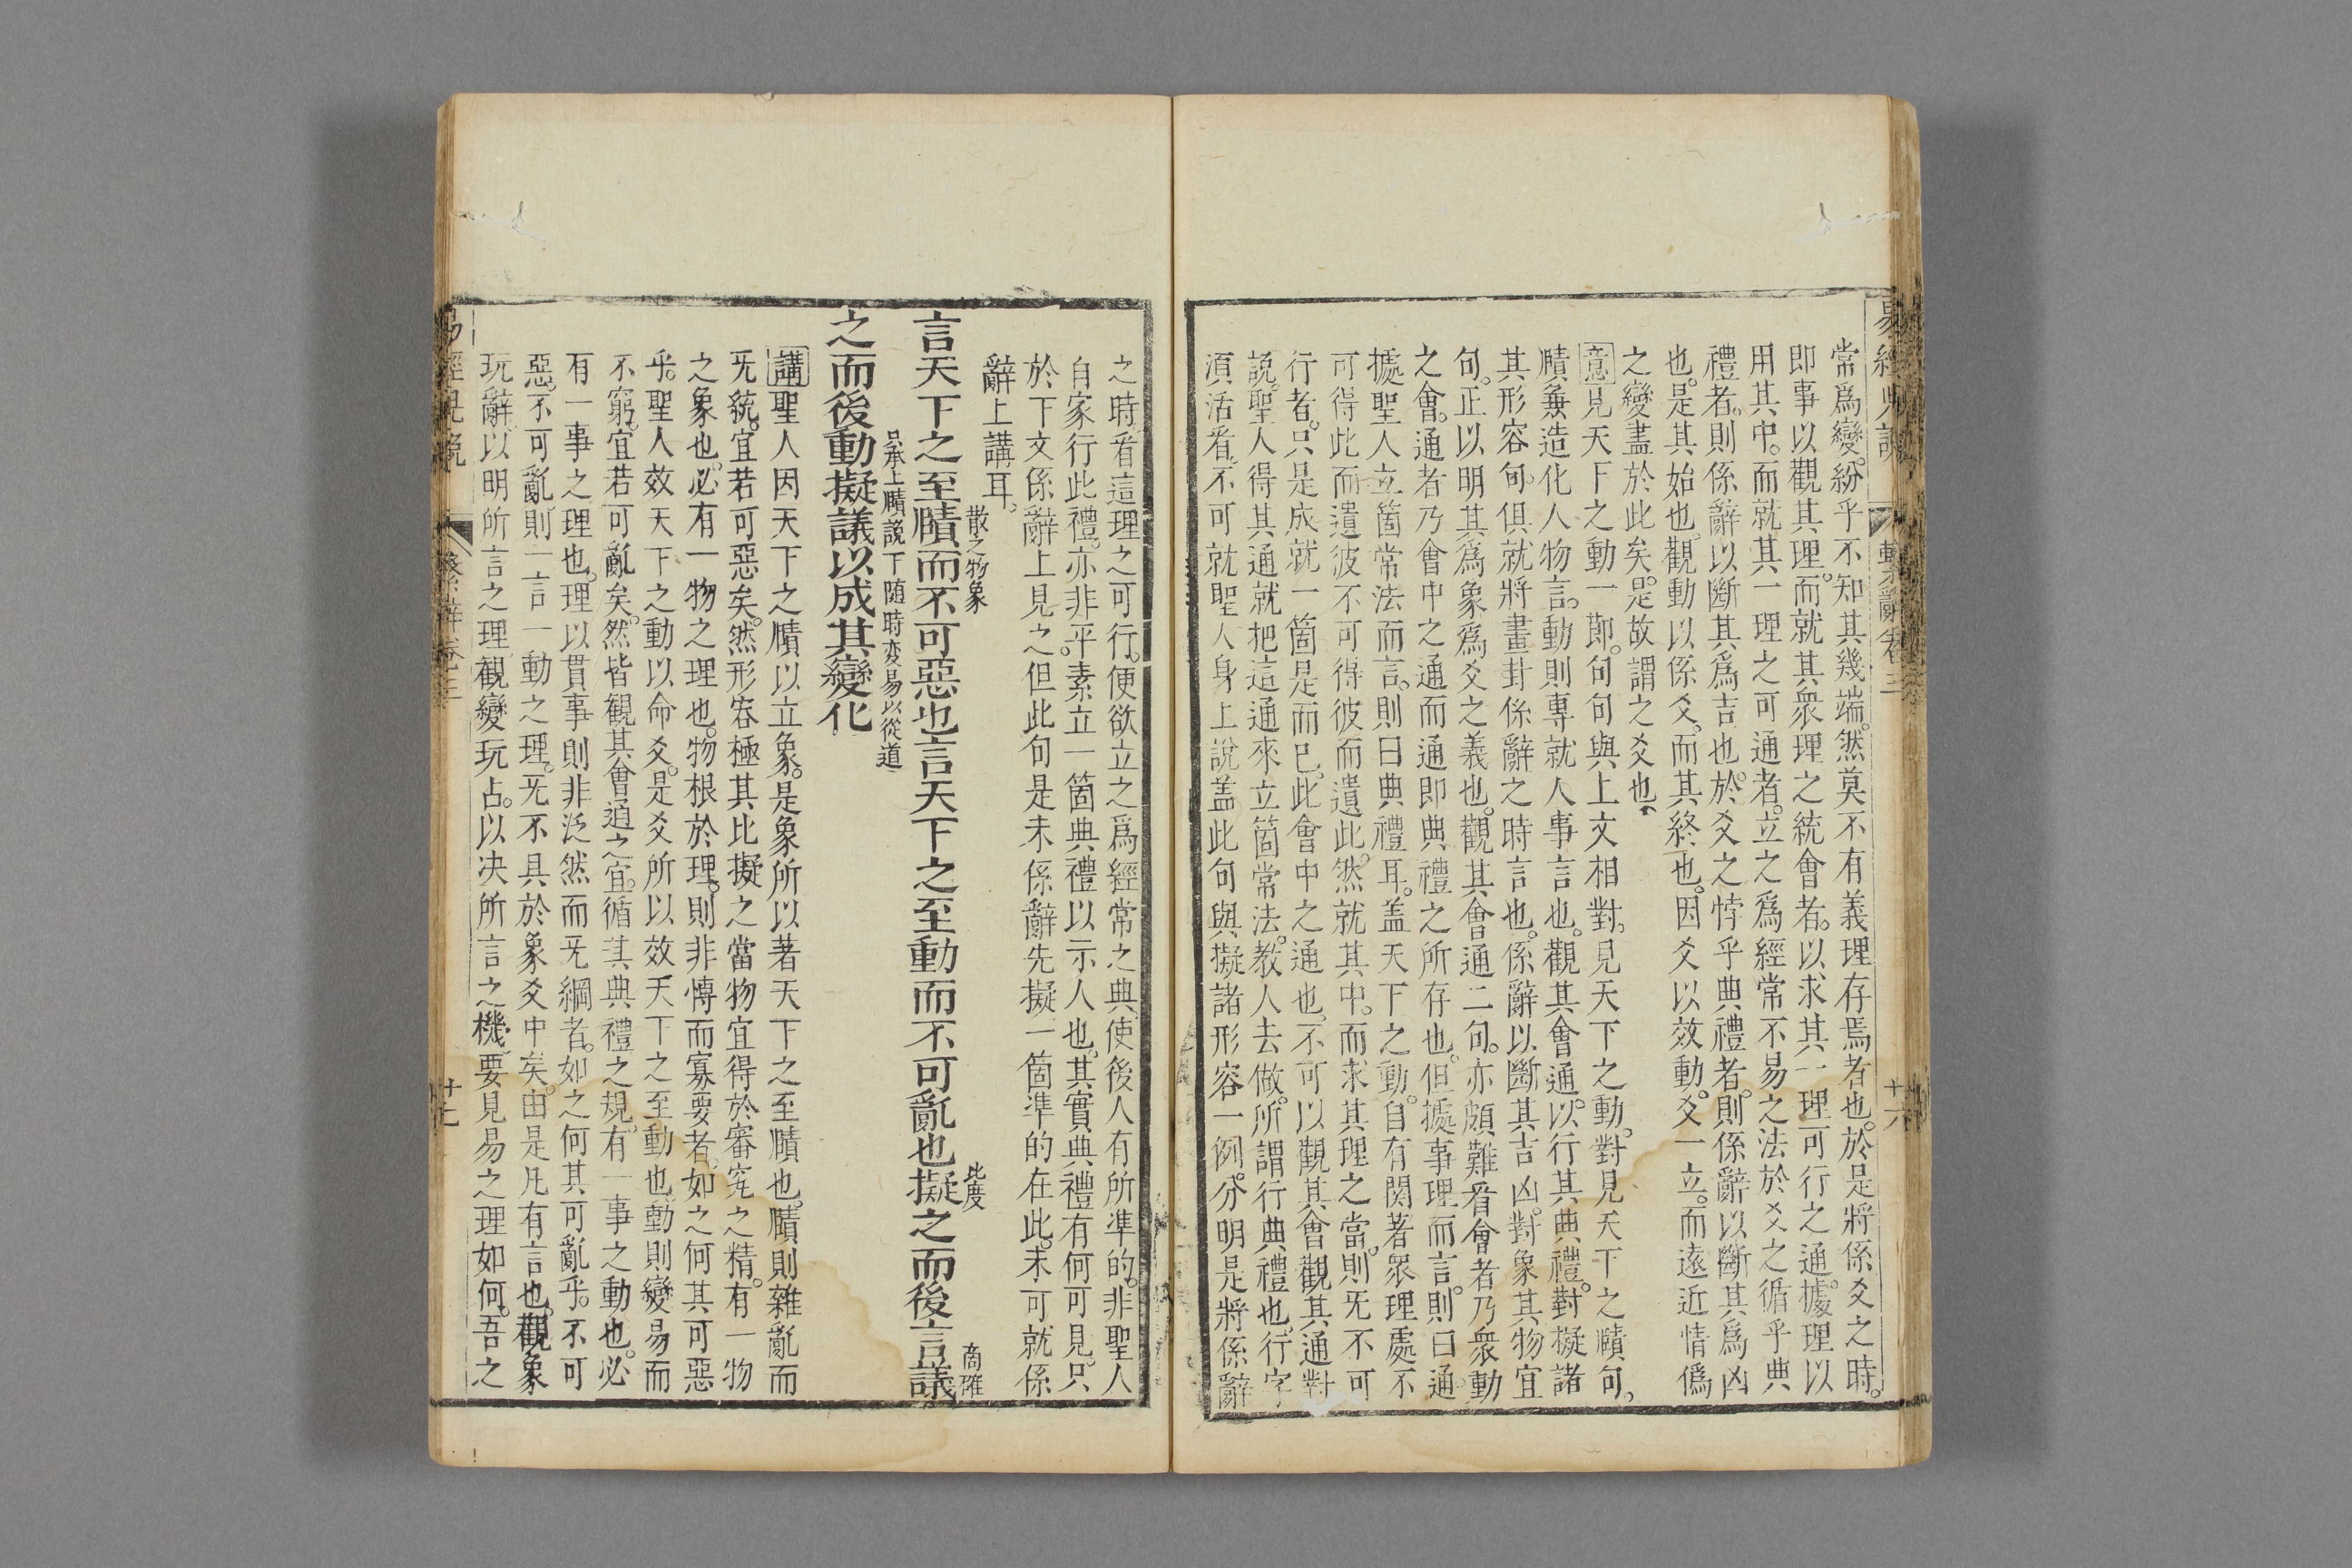 常爲變。紛乎不知其幾端。然莫不有義理存焉者也。於是將係爻之時。
即事以觀其理。而就其衆理之統會者。以求其一理可行之通。據理以
用其中。而就其一理之可通者。立之爲經常不易之法於爻之循乎典
禮者。則係辭以斷其爲吉也。於爻之悖乎典禮者。則係辭以斷其爲凶
也。是其始也。觀動以係爻。而其終也。因爻以效動。爻一立。而遠近情僞
之變盡於此矣。是故謂之爻也。
意見天下之動一節。句句與上文相對。見天下之動。對見天下之賾句。
賾兼造化人物言。動則專就人事言也。觀其會通。以行其典禮。對擬諸
其形容句。俱就將畫卦係辭之時言也。係辭以斷其吉凶。對象其物宜
句。正以明其爲象爲爻之義也。觀其會通二句。亦頗難看會者乃衆動
之會。通者乃會中之通而通即典禮之所存也。但據事理而言。則曰通
據聖人立箇常法而言。則曰典禮耳。蓋天下之動。自有関著衆理處不
可得此而遺彼不可得彼而遺此。然就其中。而求其理之當。則旡不可
行者。只是成就一箇是而已。此會中之通也。不可以觀其會觀其通對
說。聖人得其通就把這通來立箇常法。教人去做。所謂行典禮也。行字
湏活看。不可就聖人身上說盖此句與擬諸形容一例。分明是將係辭
之時。看這理之可行。便欲立之爲經常之典。使後人有所凖的。非聖人
自家行此禮。亦非平素立一箇典禮以示人也。其實典禮有何可見。只
於下文係辭上見之但此句是未係辭先擬一箇凖的在此。未可就係
辭上講耳。
散之物象
比度
商確
言天下之至賾而不可惡也言天下之至動而不可亂也擬之而後言議
之而後動擬議以成其變化
承上賾說下隨時変易以從道
講聖人因天下之賾以立象。是象所以著天下之至賾也。賾則雜亂而
旡統。宜若可惡矣。然形容極其比擬之當物宜得於審究之精。有一物
之象也。必有一物之理也。物根於理。則非慱而寡要者。如之何其可惡
乎。聖人效天下之動以命爻。是爻所以效天下之至動也動則變易而
不窮。宜若可亂矣。然皆觀其會通之宜。循其典禮之規。有一事之動也。必
有一事之理也。理以貫事則非泛然而旡綱者。如之何其可亂乎。不可
惡。不可亂。則一言一動之理。旡不具於象爻中矣。由是凡有言也。觀象
玩辭。以明所言之理觀變玩占。以决所言之機。要見易之理如何。吾之
繫辭卷三
十六
十七